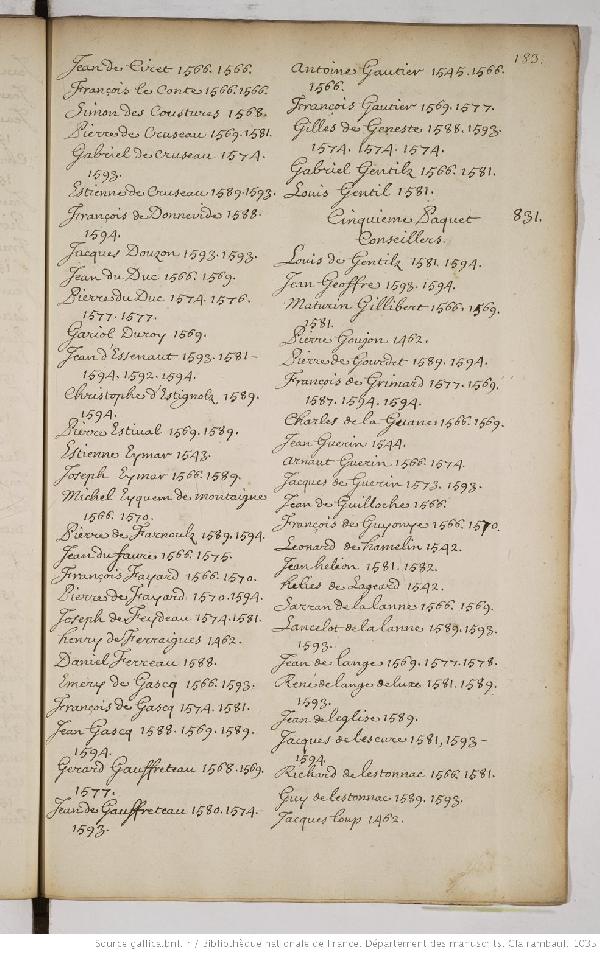 183.
Jean de Ciret 1566. 1566.
François le Conte 1566. 1566.
Simon des Coustures 1568.
Pierre de Cruseau 1569. 1581.
Gabriel de Cruseau 1574.
1593.
Estienne de Cruseau 1589. 1593.
François de Donnevide 1588.
1594.
Jacques Douzon 1593. 1593.
Jean du Duc 1566. 1569.
Pierre du Duc 1574. 1576.
1577. 1577.
Gariol Duroy 1569.
Jean d'Essenaut 1593. 1581-
1594. 1592. 1594.
Christophe d'Estignolz 1589.
1594.
Pierre Estiual 1569. 1589.
Estienne Eymar 1543.
Joseph Eymar 1566. 1589.
Michel Eyquem de montaigne
1566. 1570.
Pierre de Farnoulz 1589. 1594.
Jean du faure 1566. 1575.
François Fayard 1566. 1570.
Pierre de Fayard 1570. 1594.
Joseph de Feydeau 1574. 1581.
henry de Ferraigues 1462.
Daniel Ferreau 1588.
Emery de Gascq 1566. 1593.
François de Gascq 1574. 1581.
Jean Gascq 1588. 1569. 1589.
1594.
Gerard Gauffreteau 1568. 1569.
1577.
Jean de Gauffreteau 1580. 1574-
1593.
Antoine Gautier 1545. 1566.
1566.
François Gautier 1569. 1577.
Gilles de Geneste 1588. 1593.
1574. 1574. 1574.
Gabriel Gentilz 1566. 1581.
Louis Gentil 1581.
Cinquieme Paquet 831.
Conseillers.
Louis de Gentilz 1581. 1594.
Jean Geoffre 1593. 1594.
Maturin Gillibert 1566. 1569.
1581.
Pierre Goujon 1462.
Pierre de Gourdet 1589. 1594.
François de Grimard 1577. 1569.
1587. 1594. 1594.
Charles de la Guiane 1566. 1569.
Jean Guerin 1544.
arnaut Guerin 1566. 1574.
Jacques de Guerin 1573. 1593.
Jean de Guilloche 1566.
François de Guyonye 1566. 1570.
Leonard de hamelin 1542.
Jean helion 1581. 1582.
helies de Lageard 1542.
Sarran de la lanne 1566. 1569.
Lancelot de la lanne 1589. 1593.
1593.
Jean de lange 1569. 1577. 1578.
René de lange de luxe 1581. 1589.
1593.
Jean de leglise 1589.
Jacques de lescure 1581, 1593-
1594.
Richard de lestonnac 1566. 1581.
Guy de lestonnac 1589. 1593.
Jacques loup 1462.
Source gallica.bnf.fr / Bibliothèque nationale de France. Département des manuscrits. Clairambault 1035